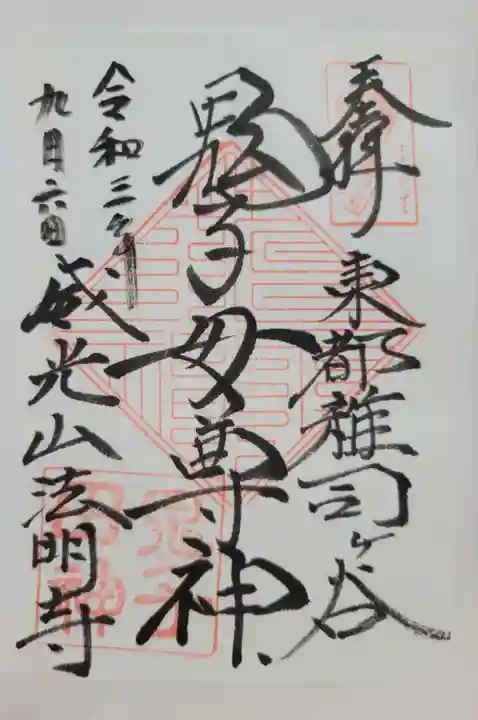 奉拝
東都雑司ヶ谷
鬼子母尊神
令和三年
九月六日
威光山法明寺